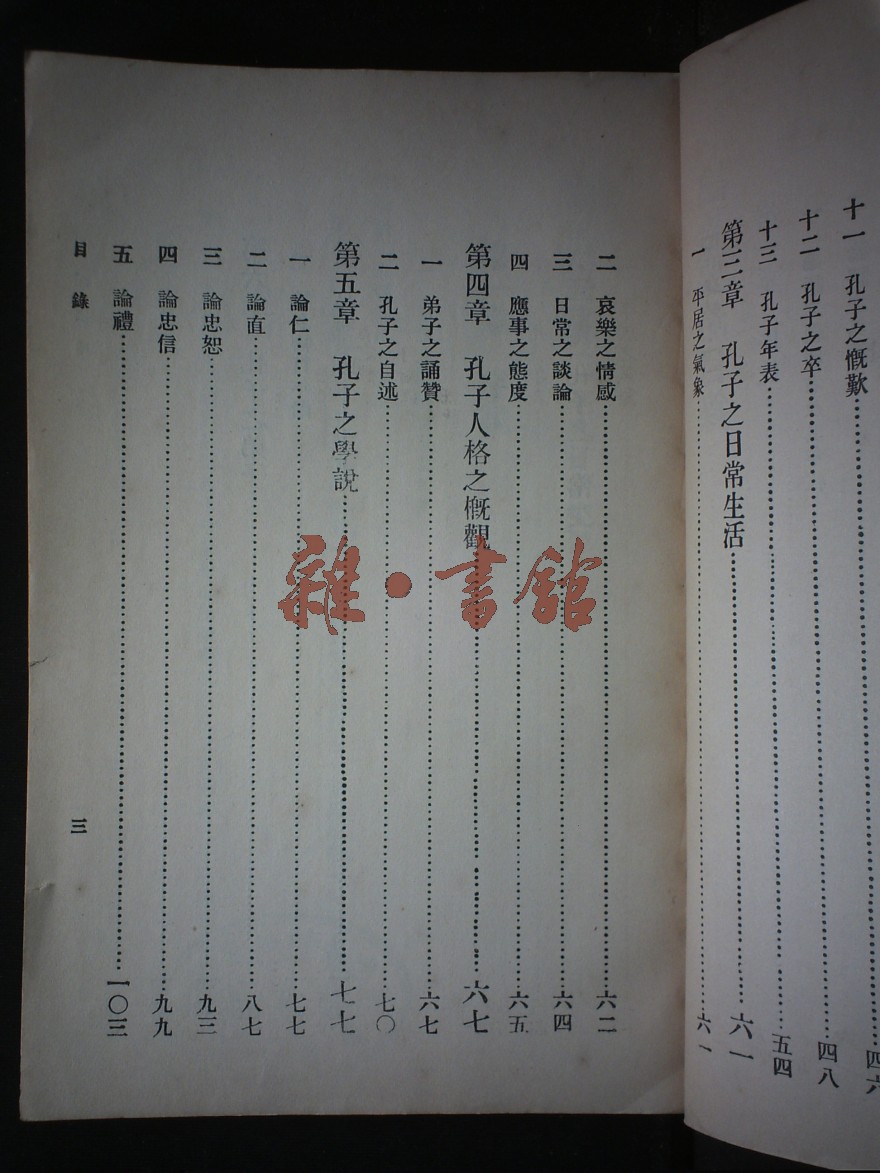 十一 孔子之慨歎 四六
十二 孔子之卒 四八
十三 孔子年表 五四
第三章 孔子之日常生活 六一
一 平居之氣象 六一
二 哀樂之情感 六二
三 日常之談論 六四
四 應事之態度 六五
第四章 孔子人格之概觀 六七
一 弟子之誦贊 六七
二 孔子之自述 七〇
第五章 孔子之學說 七七
一 論仁 七七
二 論直 八七
三 論忠恕 九三
四 論忠信 九九
五 論禮 一〇三
目錄 三
雜·書館